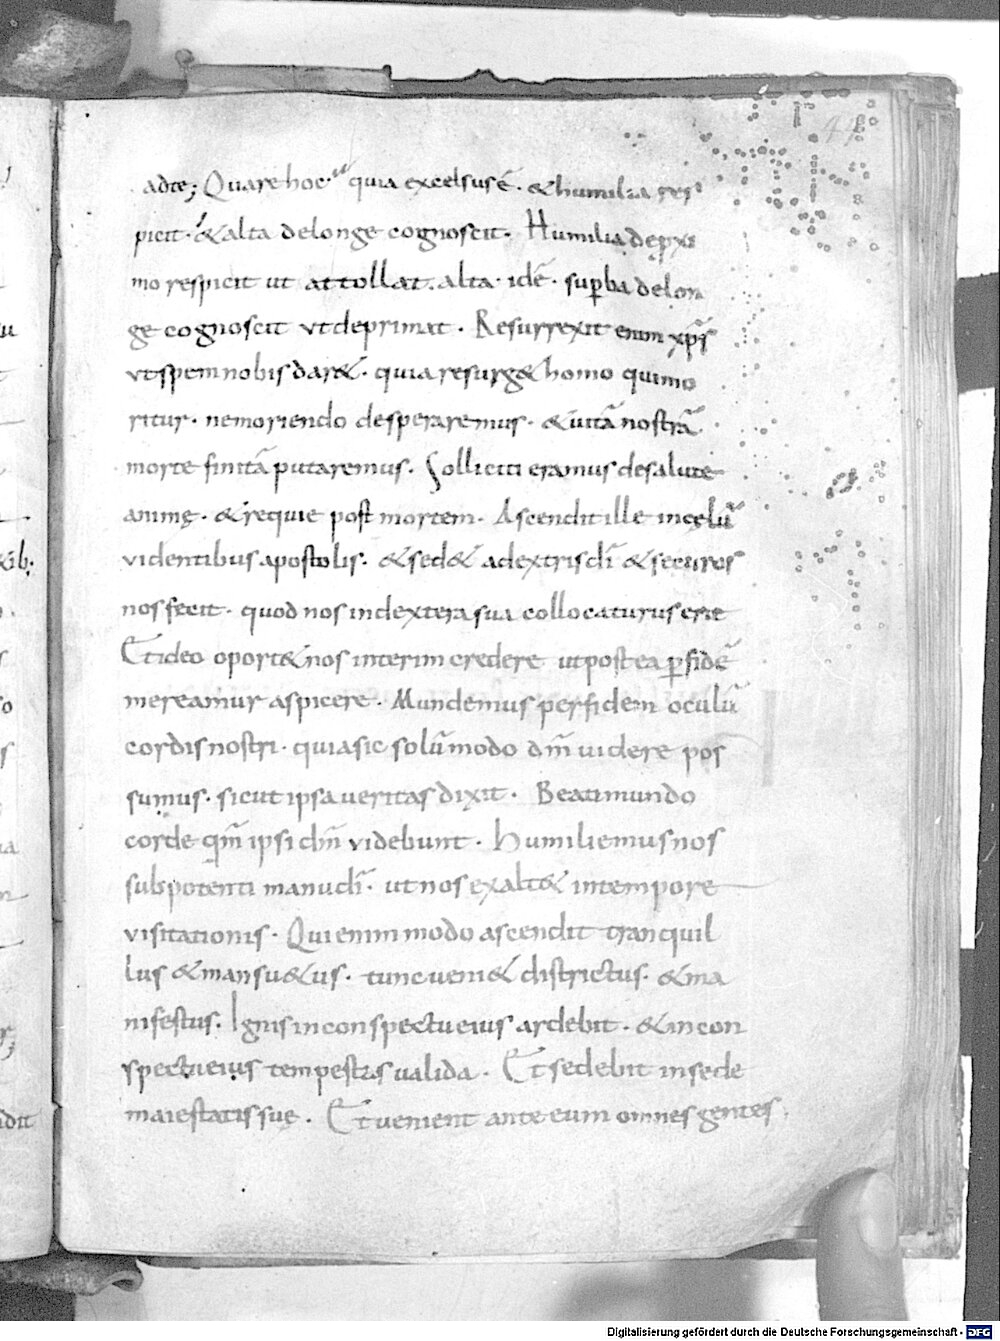 44
adte; Quare hoc. quia excelsus ē. & humilia res
picit. & alta delonge cognoscit. Humilia depxi
mo respicit ut attollat. alta. idē. supba delon
ge cognoscit ut deprimat. Resurrexit enim xp̄s
ut spem nobis dar&. quia resurg& homo qui mo
ritur. ne moriendo desperaremus. & uitā nostrā
morte finitā putaremus. Solliciti eramus de salute
animę. & requie post mortem. Ascendit ille in cęlū
videntibus apostolis. & sed& adextris dī & securos
nos fecit. quod nos in dextera sua collocaturus erit
Et ideo oport& nos interim credere ut postea p fidē
mereamur aspicere. Mundemus per fidem oculū
cordis nostri. quia sic solūmodo dm̄ uidere pos
sumus. sicut ipsa ueritas dixit. Beati mundo
corde qm̄ ipsi dm̄ videbunt. Humiliemus nos
sub potenti manu dī. ut nos exalt& in tempore
visitationis. Qui enim modo ascendit tranquil
lus & mansu&us. tunc ueni& districtus. & ma
nifestus. Ignis in conspectu eius ardebit. & in con
spectu eius tempestas ualida. Et sedebit in sede
maiestatis suę. Et uenient ante eum omnes gentes
Digitalisierung gefördert durch die Deutsche Forschungsgemeinschaft - DFG